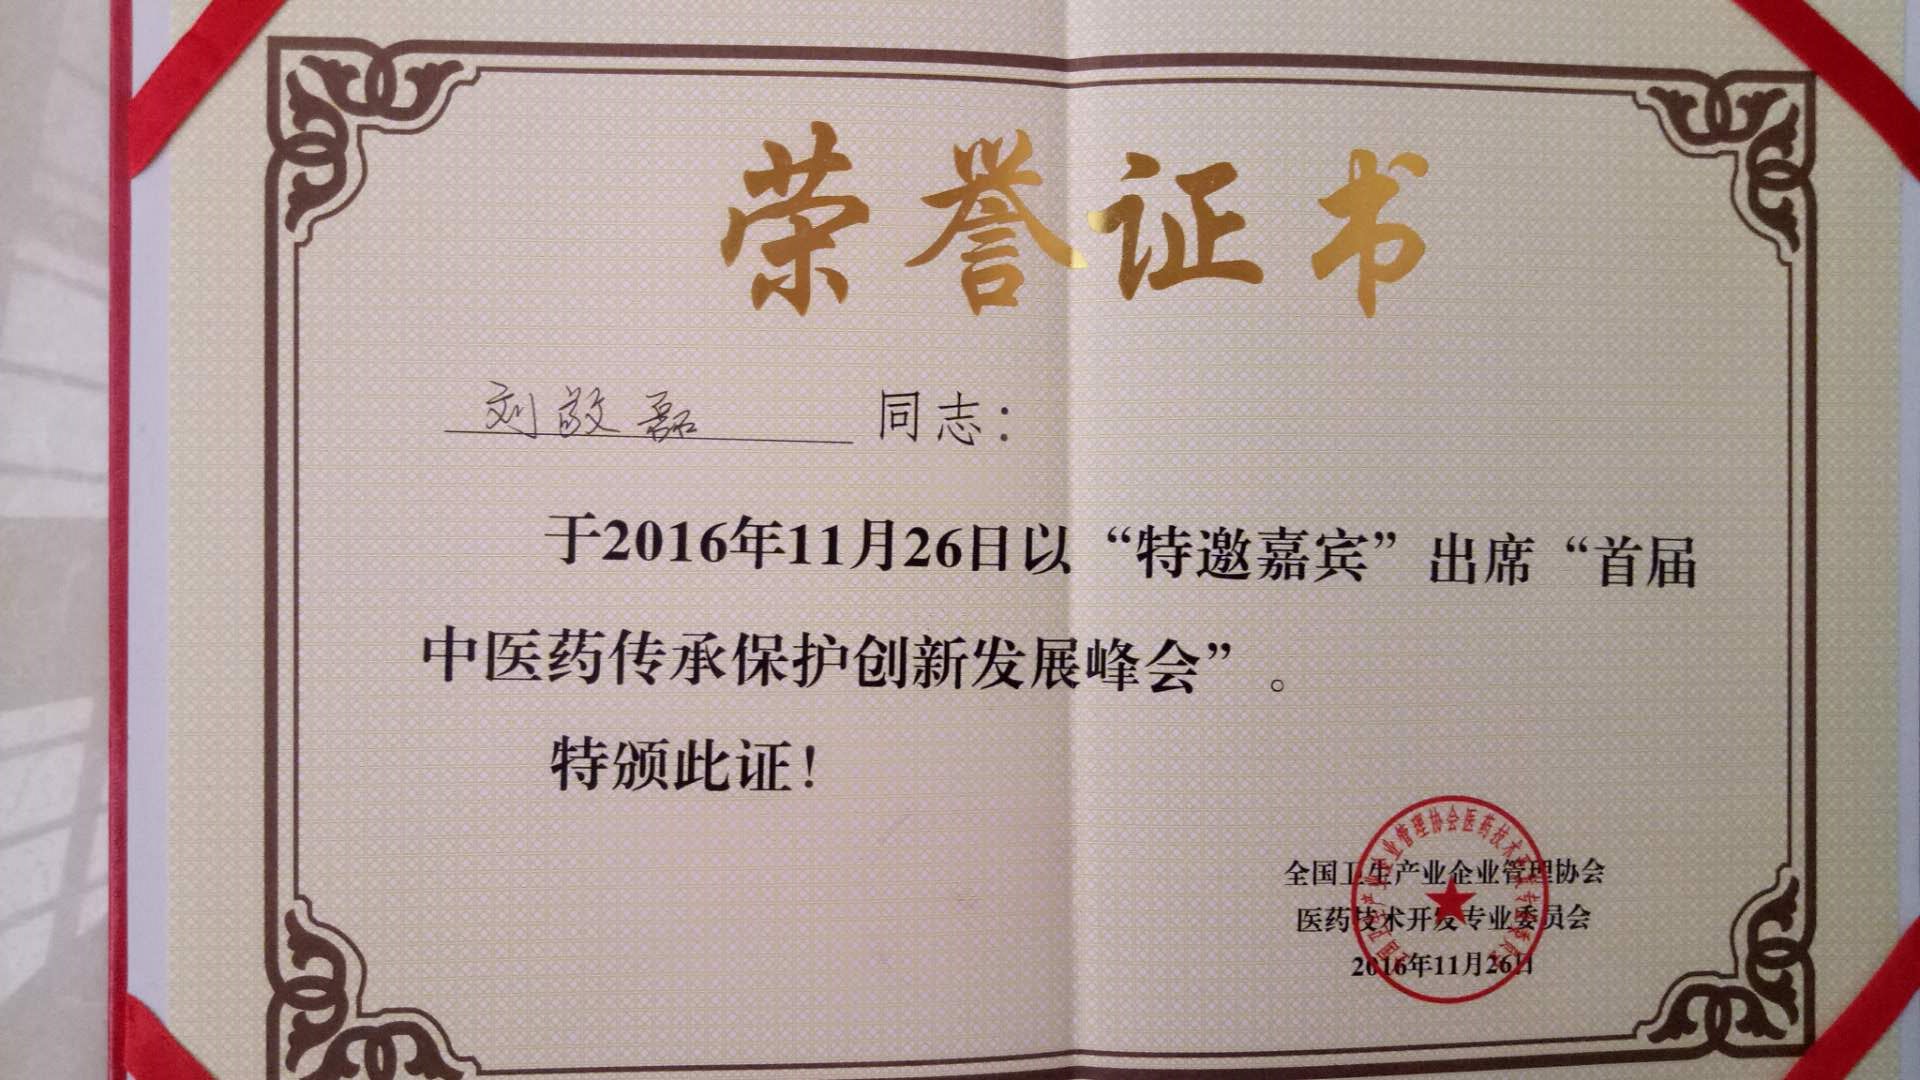 荣誉证书
刘敬磊 同志：
于2016年11月26日以“特邀嘉宾”出席“首届
中医药传承保护创新发展峰会”。
特颁此证！
全国卫生产业企业管理协会
医药技术开发专业委员会
2016年11月26日
全国卫生产业企业管理协会医药技术开发专业委员会